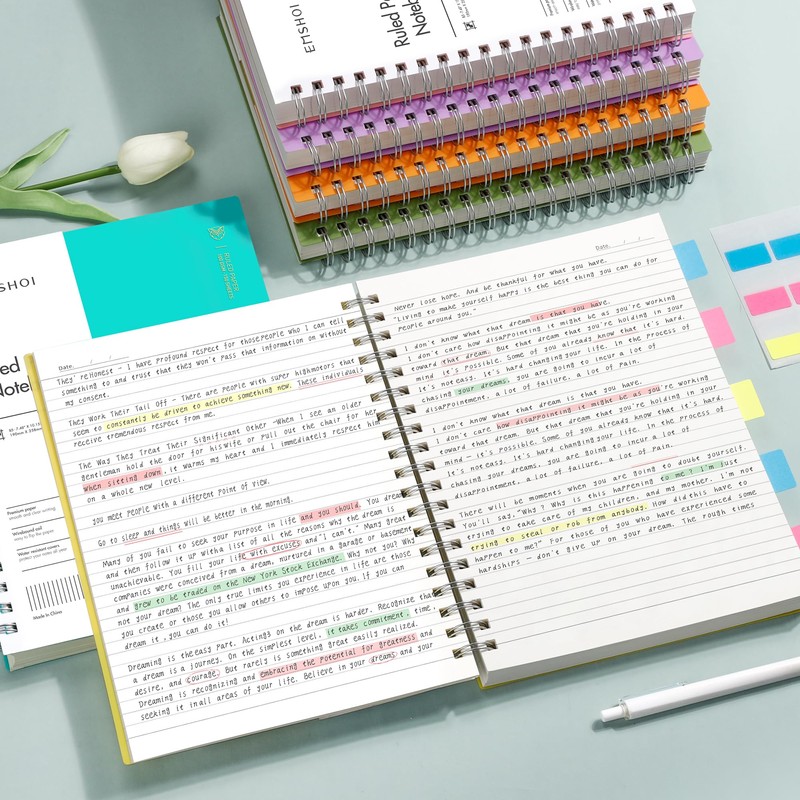 EMSHOI
Ruled P
Noteb
SHOI
led
Noteb
RULED PAPER
Premium paper
Wirebound roll
Water resistant covers
Made in China
Date. / /
They're Honese - I have profound respect for those people who I can tell
something to and trust that they won't pass that information on without
my consent.
They Work Their Tail Off - There are people with super high motors that
seem to constantly be driven to achieve something new. These individuals
receive tremendous respect from me.
The Way They Treat Their Significant Other - When I see an older
gentleman hold the door for his wife or pull out the chair for her
when sitting down, it warms my heart and I immediately respect him
on a whole new level.
you meet people with a different point of view.
Go to sleep and things will be better in the morning.
Many of you fail to seek your purpose in life and you should. You dream
and then follow it up with a list of all the reasons why the dream is
unachievable. You fill your life with excuses and "I can't." Many great
companies were conceived from a dream, nurtured in a garage or basement
and grew to be traded on the New York Stock Exchange. Why not you? Why
not your dream? The only true limits you experience in life are those
you create or those you allow others to impose upon you. If you can
dream it, you can do it!
Dreaming is the easy part. Acting on the dream is harder. Recognize that
a dream is a journey. On the simplest level, it takes commitment, time,
desire, and courage. But rarely is something great easily realized.
Dreaming is recognizing and embracing the potential for greatness and
seeking it in all areas of your life. Believe in your dreams and your
Date. / /
Never lose hope. And be thankful for what you have.
"Living to make yourself happy is the best thing you can do for
people around you."
I don't know what that dream is that you have.
I don't care how disappointing it might be as you're working
toward that dream. But that dream that you're holding in your
mind it's possible. Some of you already know that it's hard.
It's not easy. It's hard changing your life. In the process of
chasing your dreams, you are going to incur a lot of
disappointment, a lot of failure, a lot of pain.
I don't know what that dream is that you have.
I don't care how disappointing it might be as you're working
toward that dream. But that dream that you're holding in your
mind - it's possible. Some of you already know that it's hard.
It's not easy. It's hard changing your life. In the process of
chasing your dreams, you are going to incur a lot of
disappointment, a lot of failure, a lot of pain.
There will be moments when you are going to doubt yourself.
You'll say, "Why? Why is this happening to me? I'm just
trying to take care of my children, and my mother. I'm not
trying to steal or rob from anybody. How did this have to
happen to me?" For those of you who have experienced some
hardships - don't give up on your dream. The rough times